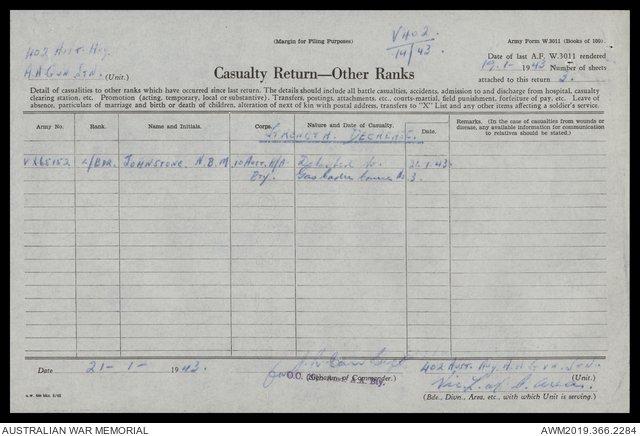 (Margin for Filing Purposes)
V402.
14/43.
Army Form W.3011 (Books of 100).
402 Aust. Hvy.
A.A. Gun Stn. (Unit.)
Date of last A.F. W.3011 rendered
19-1- 1943 Number of sheets
attached to this return 2.
Casualty Return—Other Ranks
Detail of casualties to other ranks which have occurred since last return. The details should include all battle casualties, accidents, admission to and discharge from hospital, casualty
clearing station, etc. Promotion (acting, temporary, local or substantive). Transfers, postings, attachments, etc., courts-martial, field punishment, forfeiture of pay, etc. Leave of
absence, particulars of marriage and birth or death of children, alteration of next of kin with postal address, transfers to "X" List and any other items affecting a soldier's service.
Army No. Rank. Name and Initials. Corps. Nature and Date of Casualty. Date. Remarks. (In the case of casualties from wounds or
disease, any available information for communication
to relatives should be stated.)
STRENGTH DECREASE
L/BDR. JOHNSTONE. N.B.M. 10 Aust. A/A. Detached to 21.1.43.
Bty. Gas Course No 3.
Date 21-1- 1943.
for Capt
O.C. A.A. Bty.
(Signature of Commander.)
402 Aust. Hvy. A.A. Gun. Stn.
(Unit.)
Vic. L of C. Area.
(Bde., Divn., Area, etc., with which Unit is serving.)
AUSTRALIAN WAR MEMORIAL
AWM2019.366.2284